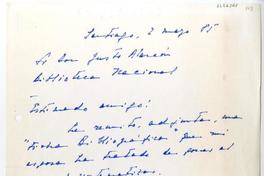 Santiago, 2 mayo 85
Sr Don Justo Alarcón
Biblioteca Nacional
Estimado amigo:
Le remito, adjunta, una
"Ficha Bibliográfica" que mi
esposa ha tratado de poner al